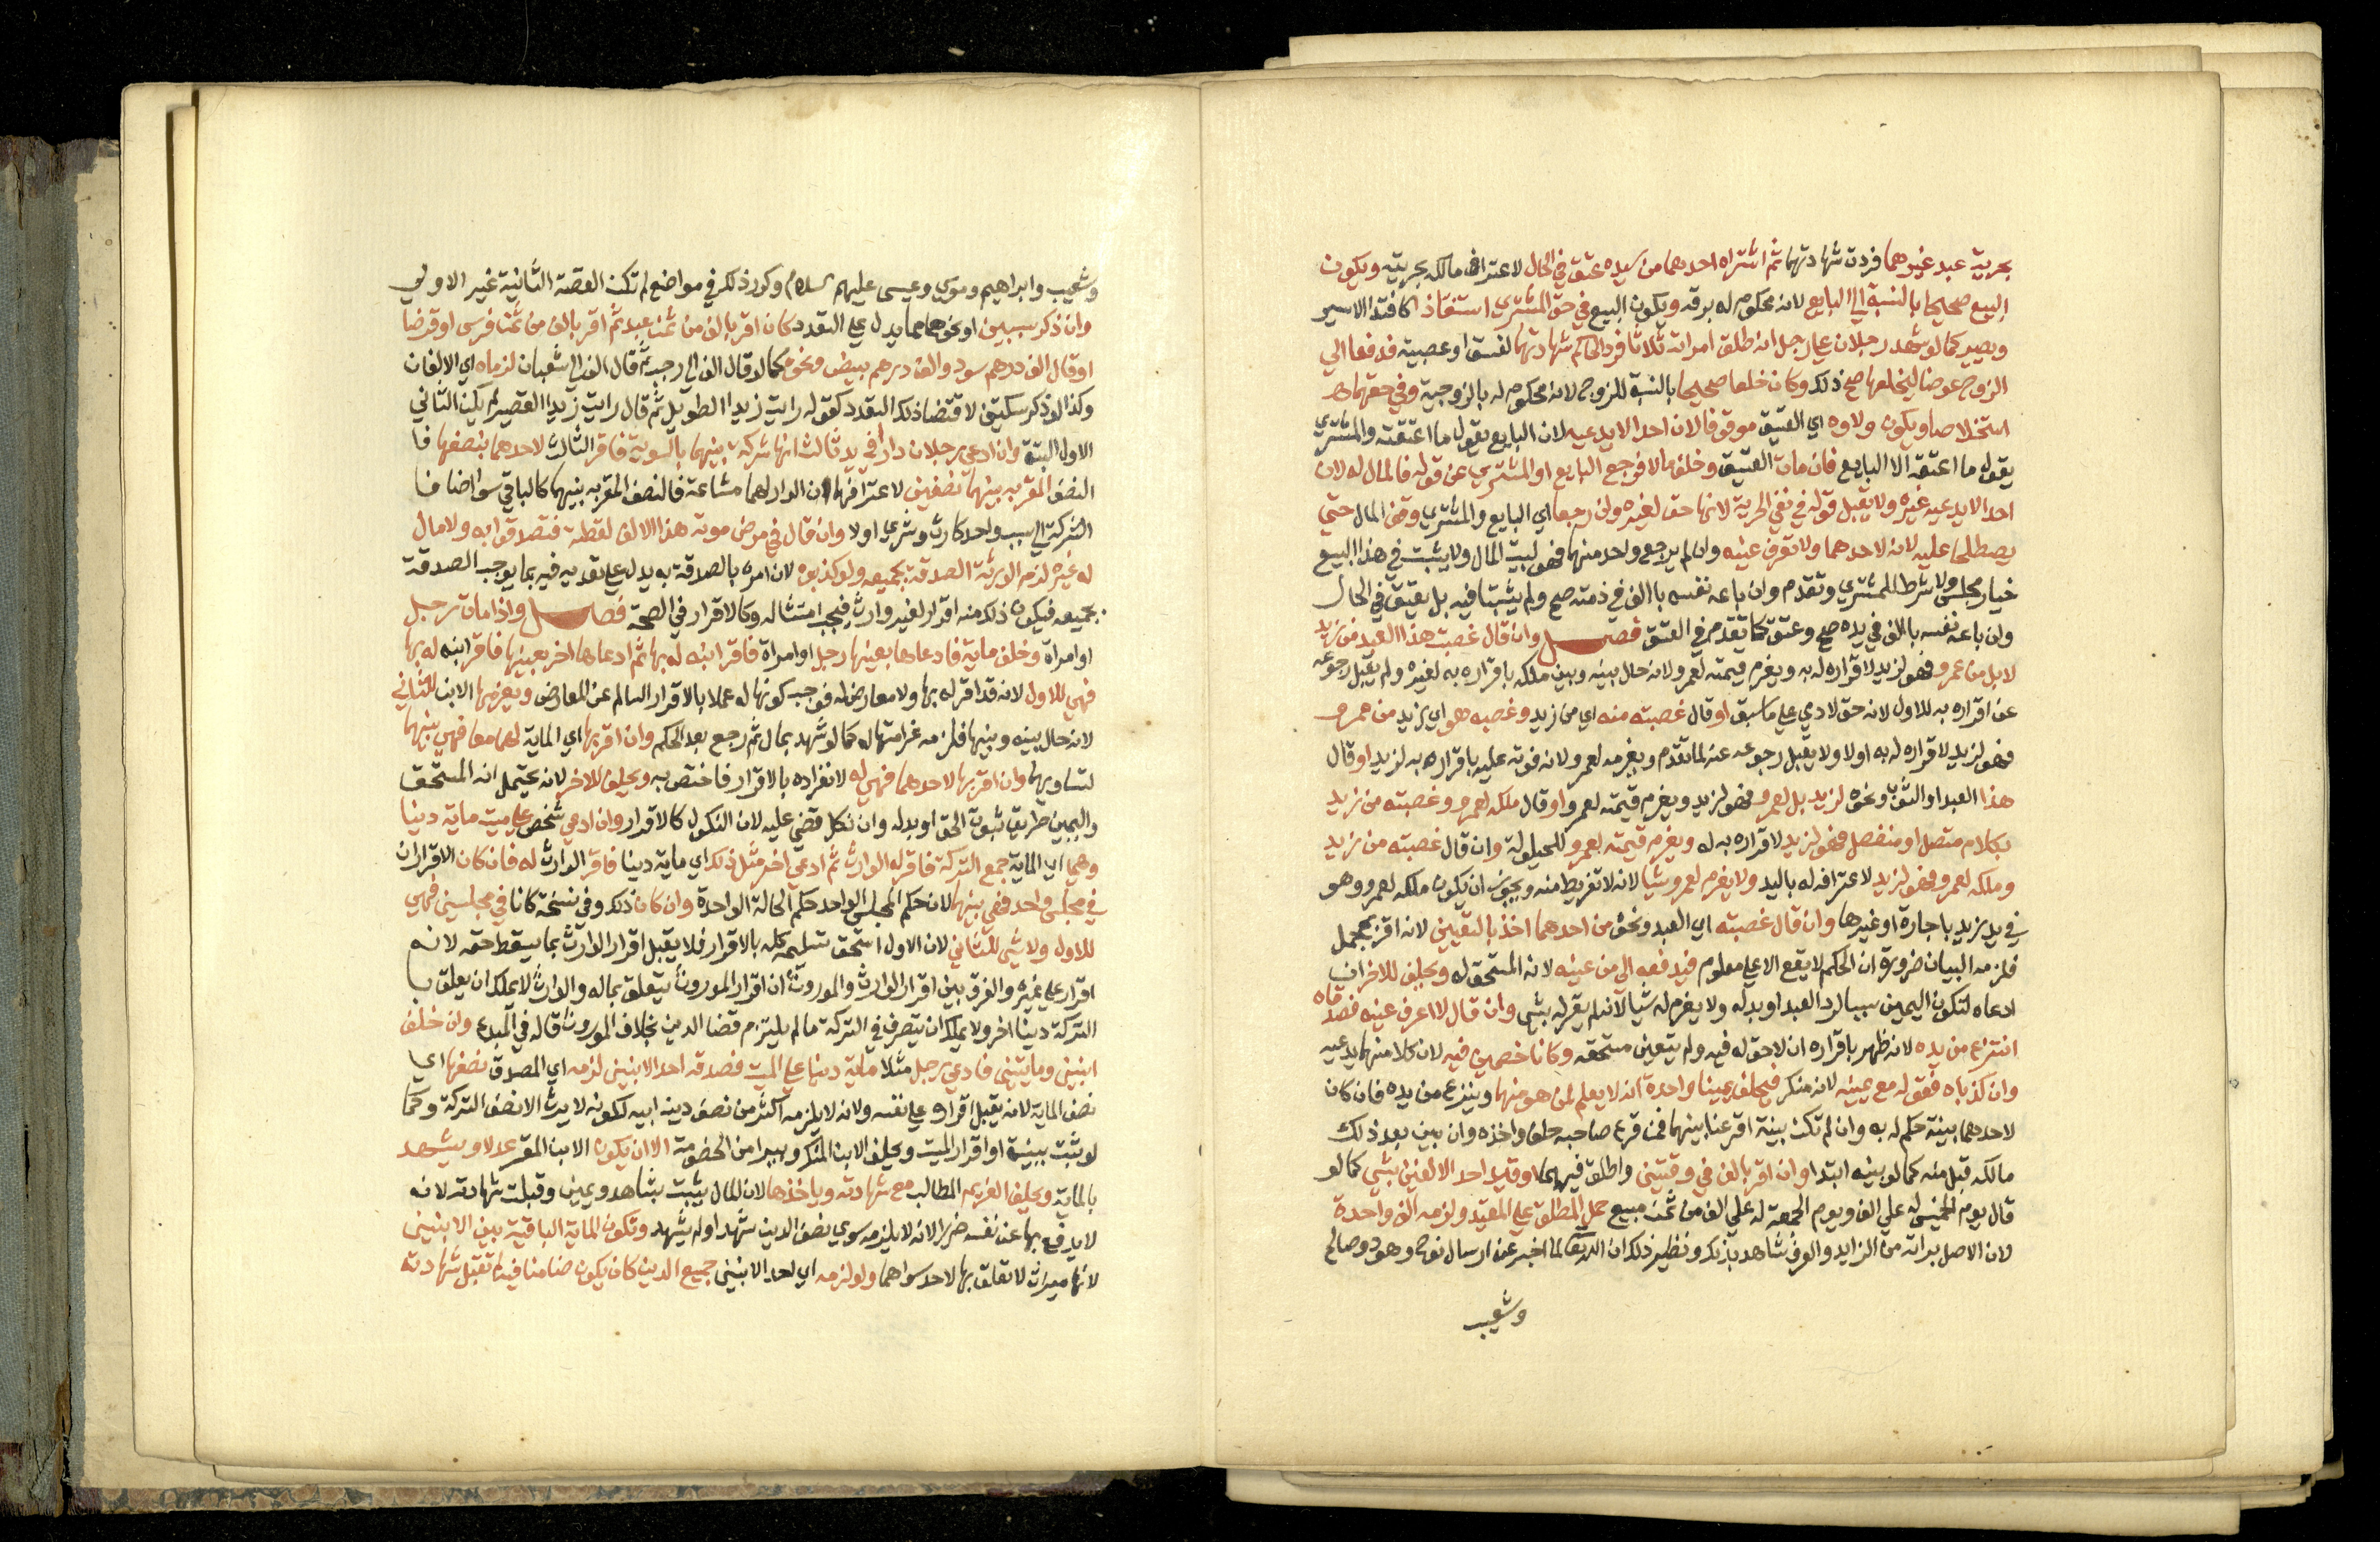 بحرية عبد غيرهما فردت شهادتهما ثم اشتراه احدهما من سيده عتق في الحال لاعترافه مالكه بحريته ويكون
البيع صحيحا بالنسبة الى البايع لانه محكوم له برقه ويكون البيع في حق المشتري استنقاذ اكافتدا الاسير
ويصير كما لو شهد رجلان على رجل انه طلق امراته ثلاثا فرد الحاكم شهادتهما لفسق او عصبية فدفعا الى
الزوج عوضا ليخلعها صح ذلك وكان خلعا صحيحا بالنسبة للزوج لانه محكوم له بالزوجية وفي حقهما
استخلاصا ويكون ولاوه اي العتيق موقوفا لان احدا لا يدعيه لان البايع يقول ما اعتقته والمشتري
يقول ما اعتقه الا البايع فان مات العتيق وخلف مالا فرجع البايع او المشتري عن قوله فالمال له لان
احدا لا يدعيه غيره ولا يقبل قوله في نفي الحرية لانها حق لغيره وان رجعا اي البايع والمشتري وقف المال حتى
يصطلحا عليه لانه لاحدهما ولا تعرف عينه وان لم يرجع واحد منهما فهو لبيت المال ولا يثبت في هذا البيع
خيار مجلس ولا شرط للمشتري وتقدم وان باعه نفسه بالف في ذمته صح ولم يثبتا فيه بل يعتق في الحال
وان باعه نفسه بالف في يده صح وعتق كما تقدم في العتق فصل وان قال غصبت هذا العبد من زيد
لا بل من عمرو فهو لزيد لاقراره له به ويغرم قيمته لعمرو لانه حال بينه وبين ملكه باقراره به لغيره ولم يقبل رجوعه
عن اقراره به للاول لانه حق لادمي على ما سبق او قال غصبته منه اي من زيد وغصبه هو اي زيد من عمرو
فهو لزيد لاقراره له به اولا ولا يقبل رجوعه عنه لما تقدم ويغرمه لعمرو لانه فوته عليه باقراره به لزيد او قال
هذا العبد او الثوب ونحوه لزيد بل لعمرو فهو لزيد ويغرم قيمته لعمرو او قال ملكه لعمرو وغصبته من زيد
بكلام متصل او منفصل فهو لزيد لاقراره به له ويغرم قيمته لعمرو للحيلولة وان قال غصبته من زيد
وملكه لعمرو فهو لزيد لاعترافه له باليد ولا يغرم لعمرو شيا لانه لا تفريط منه ويجوز ان يكون ملكه لعمرو وهو
في يد زيد باجارة او غيرها وان قال غصبته اي العبد ونحوه من احدهما اخذ بالتعيين لانه اقر بمجمل
فلزمه البيان ضرورة ان الحكم لا يقع الا على معلوم فيدفعه الى من عينه لانه المستحق له ويحلف للاخر ان
ادعاه لتكون اليمين سببا لرد العبد او بدله ولا يغرم له شيا لانه لم يقر له بشي وان قال لا اعرف عينه فصدقاه
انتزع من يده لانه ظهر باقراره ان لا حق له فيه ولم يتعين مستحقه وكانا خصمين فيه لان كلا منهما يدعيه
وان كذباه فقوله مع يمينه لانه منكر فيحلف يمينا واحدة انه لا يعلم لمن هو منهما وينزع من يده فان كان
لاحدهما بينة حكم له به وان لم تكن بينة اقرعنا بينهما فمن قرع صاحبه حلف واخذه وان بين بعد ذلك
مالكه قبل منه كما لو بينه ابتدا وان اقر بالف في وقتين واطلق فيهما او قيد احد الالفين بشي كما لو
قال يوم الخميس له علي الف ويوم الجمعة له علي الف من ثمن مبيع حمل المطلق على المقيد ولزمه الف واحدة
لان الاصل براته من الزايد والعرف شاهد بذلك ونظير ذلك ان الله تعالى لما اخبر عن ارسال نوح وهود وصالح
وشعيب
وشعيب وابراهيم وموسي وعيسى عليهم السلام وكرر ذلك في مواضع لم تكن القصة الثانية غير الاولى
وان ذكر سببين او نحوهما مما يدل على التعدد كان اقر بالف من ثمن عبد ثم اقر بالف من ثمن فرس او قرضا
او قال الف درهم سود والف درهم بيض ونحوه كما لو قال الف الى رجب ثم قال الف الى شعبان لزماه اي الالفان
وكذا لو ذكر سكتين لاقتضا ذلك التعدد كقوله رايت زيدا الطويل ثم قال رايت زيدا القصير لم يكن الثاني
الاول البتة وان ادعى رجلان دارا في يد ثالث انها شركة بينهما بالسوية فاقر الثالث لاحدهما بنصفها فا
النصف المقر به بينهما نصفين لاعترافهما ان الدار لهما مشاعة فالنصف المقر به بينهما كالباقي سوا اضافا
الشركة الى سبب واحد كارث وشرى اولا وان قال في مرض موته هذا الالف لقطة فتصدقوا به ولا مال
له غيره لزم الورثة الصدقة بجميعه ولو كذبوه لان امره بالصدقة به يدل على تعديه فيه بما يوجب الصدقة
بجميعه فيكون ذلك منه اقرار لغير وارث فيجب امتثاله وكالاقرار في الصحة فصل واذا مات رجل
او امراة وخلف ماية فادعاها بعينها رجل او امراة فاقر ابنه له بها ثم ادعاها اخر بعينها فاقر ابنه له بها
فهي للاول لانه قد اقر له بها ولا معارض له فوجب كونها له عملا بالاقرار السالم عن المعارض ويغرمها الابن للثاني
لانه حال بينه وبينها فلزمه غرامتها له كما لو شهد بمال ثم رجع بعد الحكم وان اقر بها اي الماية لهما معا فهي بينهما
لتساويهما وان اقر بها لاحدهما فهي له لانفراده بالاقرار فاختص به ويحلف للاخر لانه يحتمل انه المستحق
واليمين طريق ثبوت الحق او بدله وان نكل قضي عليه لان النكول كالاقرار وان ادعى شخص على ميت ماية دينا
وهي اي الماية جميع التركة فاقر له الوارث ثم ادعى اخر مثل ذلك اي ماية دينا فاقر الوارث له فان كان الاقراران
في مجلس واحد فهي بينهما لان حكم المجلس الواحد حكم الحالة الواحدة وان كان ذلك وفي نسخة كانا في مجلسين فهي
للاول ولا شي للثاني لان الاول استحق تسلمه كله بالاقرار فلا يقبل اقرار الوارث بما يسقط حقه لانه
اقرار على غيره والفرق بين اقرار الوارث والموروث ان اقرار الموروث يتعلق بماله والوارث لا يملك ان يعلق با
التركة دينا اخر ولا يملك ان يتصرف في التركة ما لم يلتزم قضا الدين بخلاف الموروث قاله في المبدع وان خلف
ابنين ومايتين فادعى رجل مثلا ماية دينا على الميت فصدقه احد الابنين لزمه اي المصدق نصفها اي
نصف الماية لانه يقبل اقراره على نفسه ولانه لا يلزمه اكثر من نصف دين ابيه لكونه لا يرث الا نصف التركة وكما
لو ثبت ببينة او اقرار الميت ويحلف الابن المنكر ويبرا من الخصومة الا ان يكون الابن المقر عدلا ويشهد
بالماية ويحلف الغريم المطالب مع شهادته وياخذها لان المال يثبت بشاهد ويمين وقبلت شهادته لانه
لا يدفع بها عن نفسه ضررا لانه لا يلزمه سوي نصف الدين شهد او لم يشهد وتكون الماية الباقية بين الابنين
لانها ميراث لا تعلق بها لاحد سواهما ولو لزمه اي احد الابنين جميع الدين كان يكون ضامنا فيه لم تقبل شهادته